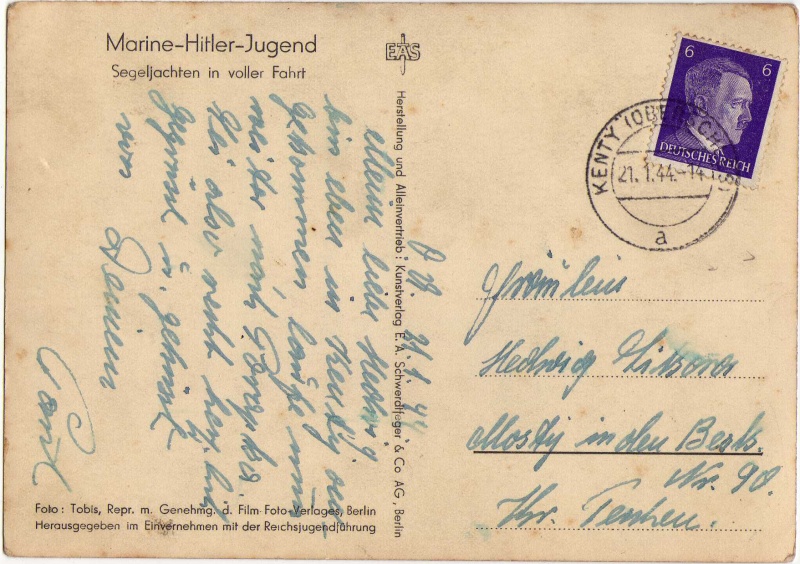 Marine-Hitler-Jugend
Segeljachten in voller Fahrt
EAS
Herstellung und Alleinvertrieb: Kunstverlag E. A. Schwerdtfeger & Co AG, Berlin
6 6
DEUTSCHES REICH
KENTY (OBERSCHLES)
21. 1. 44.-14
a
O. S. 21/1. 44
Meine liebe Hedwig,
bin eben in Kenty an-
gekommen,
nun
weiter nach
Sei also recht herzlich
gegrüsst u. geküsst
von
Deinem
Fräulein
Hedwig
Mosty in den Besk.
Nr. 90.
Kr. Teschen.
Foto: Tobis, Repr. m. Genehmg. d. Film-Foto-Verlages, Berlin
Herausgegeben im Einvernehmen mit der Reichsjugendführung